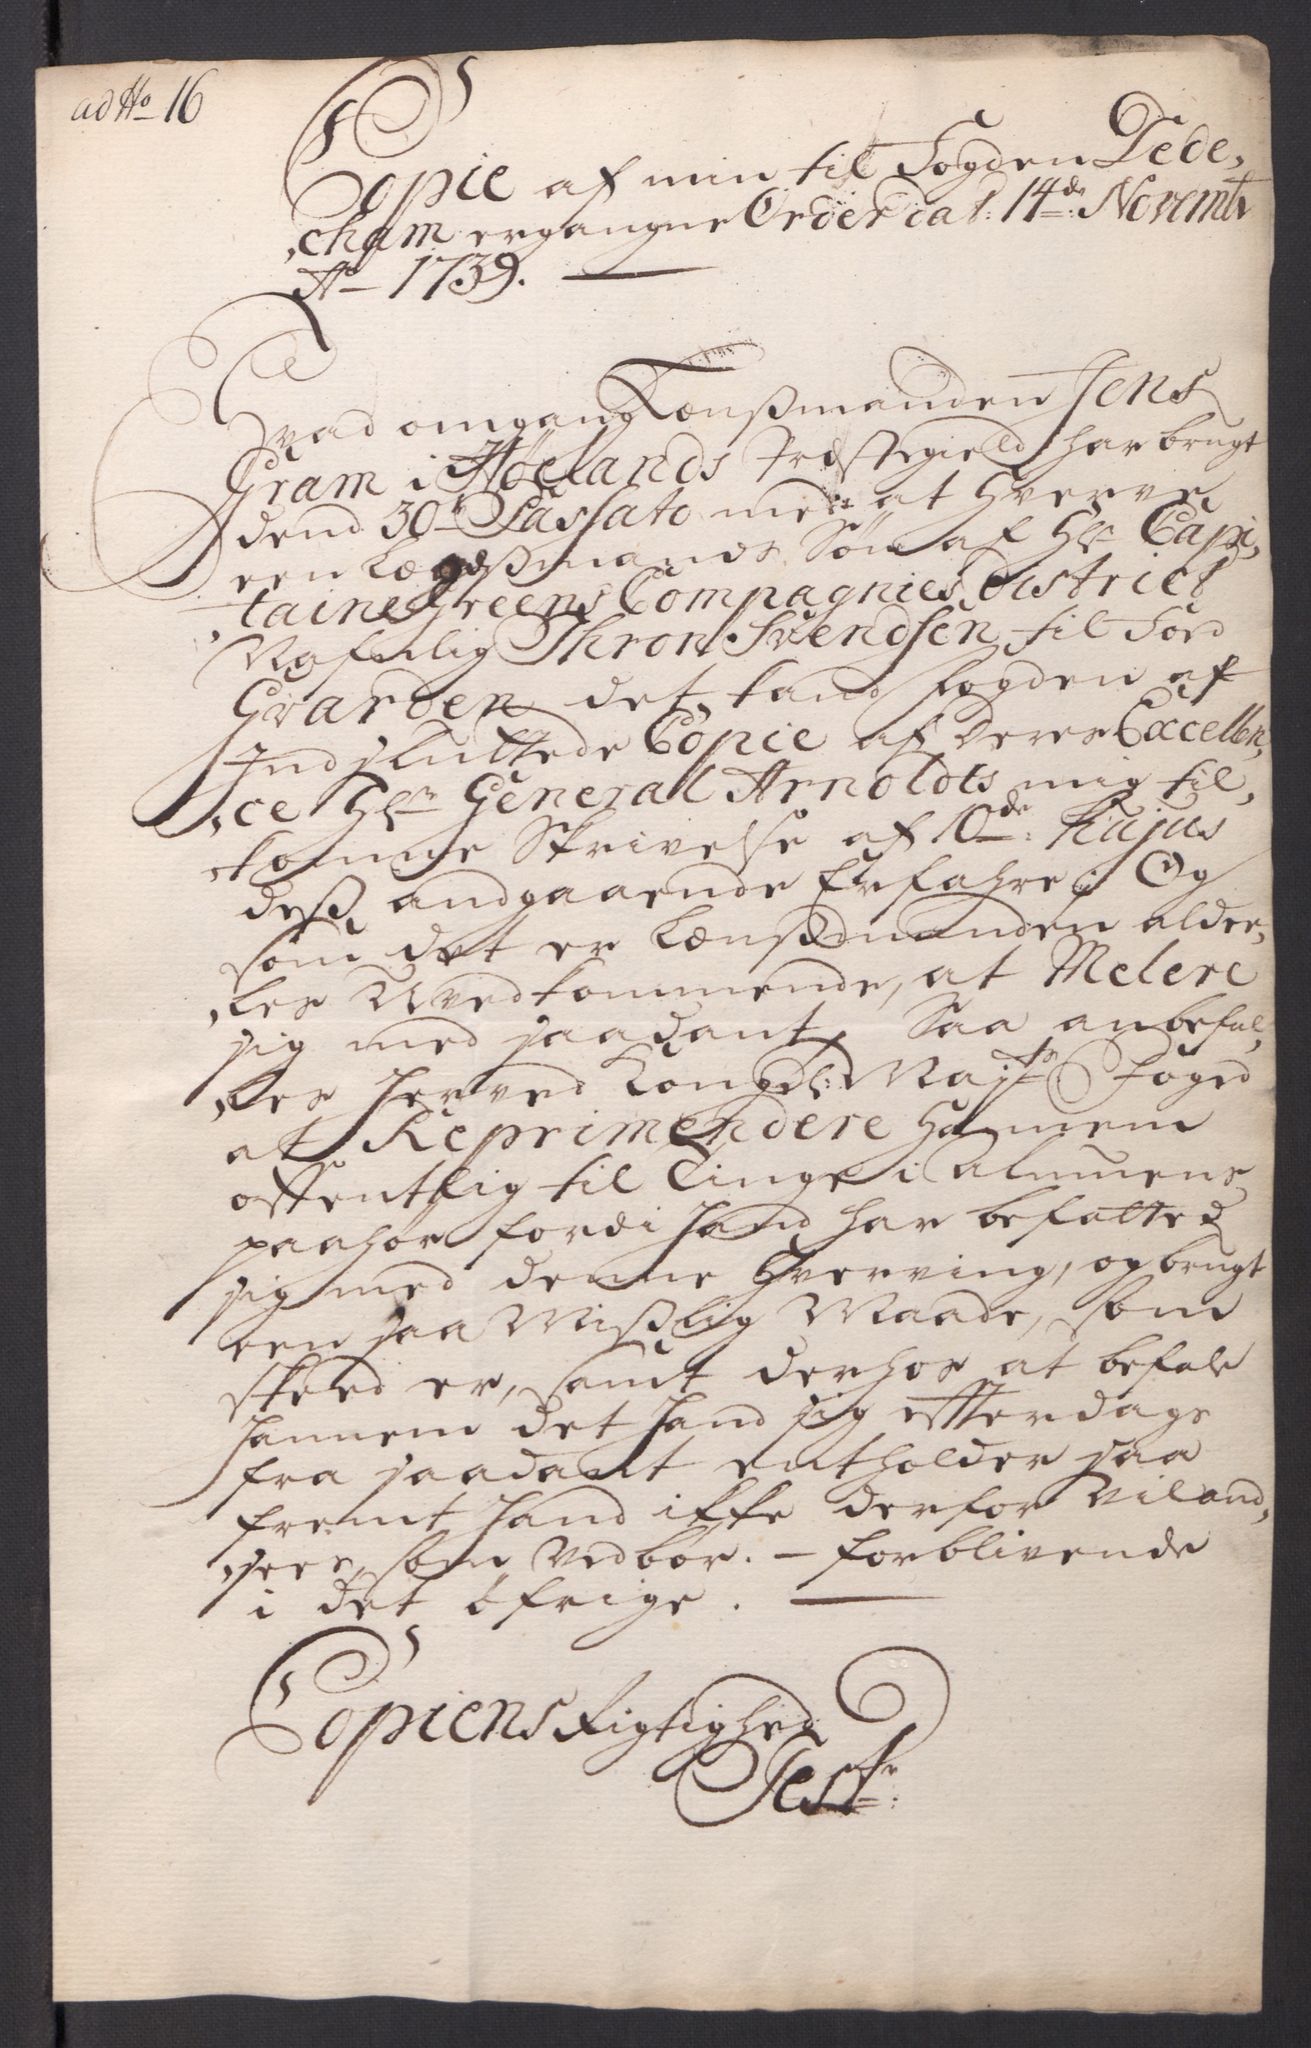 ad No 16
Copie af min til Fogden Tede,
,cham ergangne Order dat: 14de: Novembr
Ao 1739.
Hvad omgang Lænßmanden Jens
Gram i Høelands Præstegield har brugt
dend 30te Passato med at hverve
een Lægdßmands Søn af Hr Capi,
,taine Greens Compagnies District
Nafnlig Thron Svendsen til Ford
Gvarden, det kand Fogden af
Indsluttede Copie af deres Excellen,
,ce Hr General Arnoldts mig til,
,komne Skrivelse af 10de: hujus
deß andgaaende Erfahre; Og
som det er Lænßmanden alde,
,les Uvedkommende, at Melere
sig med saadant, Saa anbefal,
,les herved Kongl: Mayts Foged
at Reprimendere hannem
offentlig til Tinge i Almuens
paahør fordi hand har befatted
sig med denne Hverving, og brugt
een saa Mißlig Maade, som
skeed er, samt derhos at befale
hannem det hand sig efterdags
fra saadant entholder saa
fremt hand ikke derfor vil and,
,sees, som vedbør. – forblivende
i det øfrige.
Copiens Rigtighed
Test: